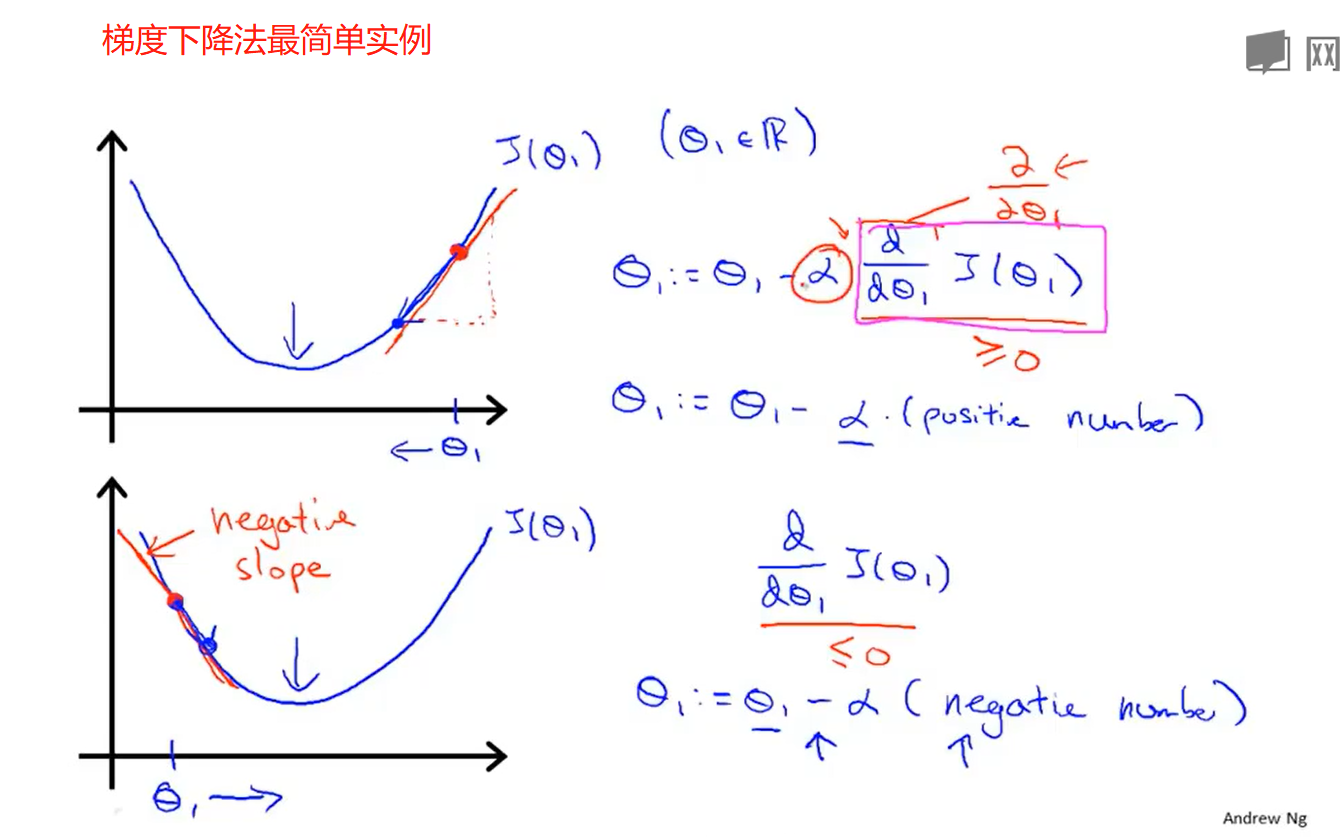 梯度下降法最简单实例
J(θ₁) (θ₁ ∈ ℝ)
∂/∂θ₁ ←
θ₁ := θ₁ - α d/dθ₁ J(θ₁)
≥ 0
θ₁ := θ₁ - α · (positive number)
← θ₁
negative
slope
J(θ₁)
d/dθ₁ J(θ₁)
≤ 0
θ₁ := θ₁ - α (negative number)
θ₁ →
Andrew Ng